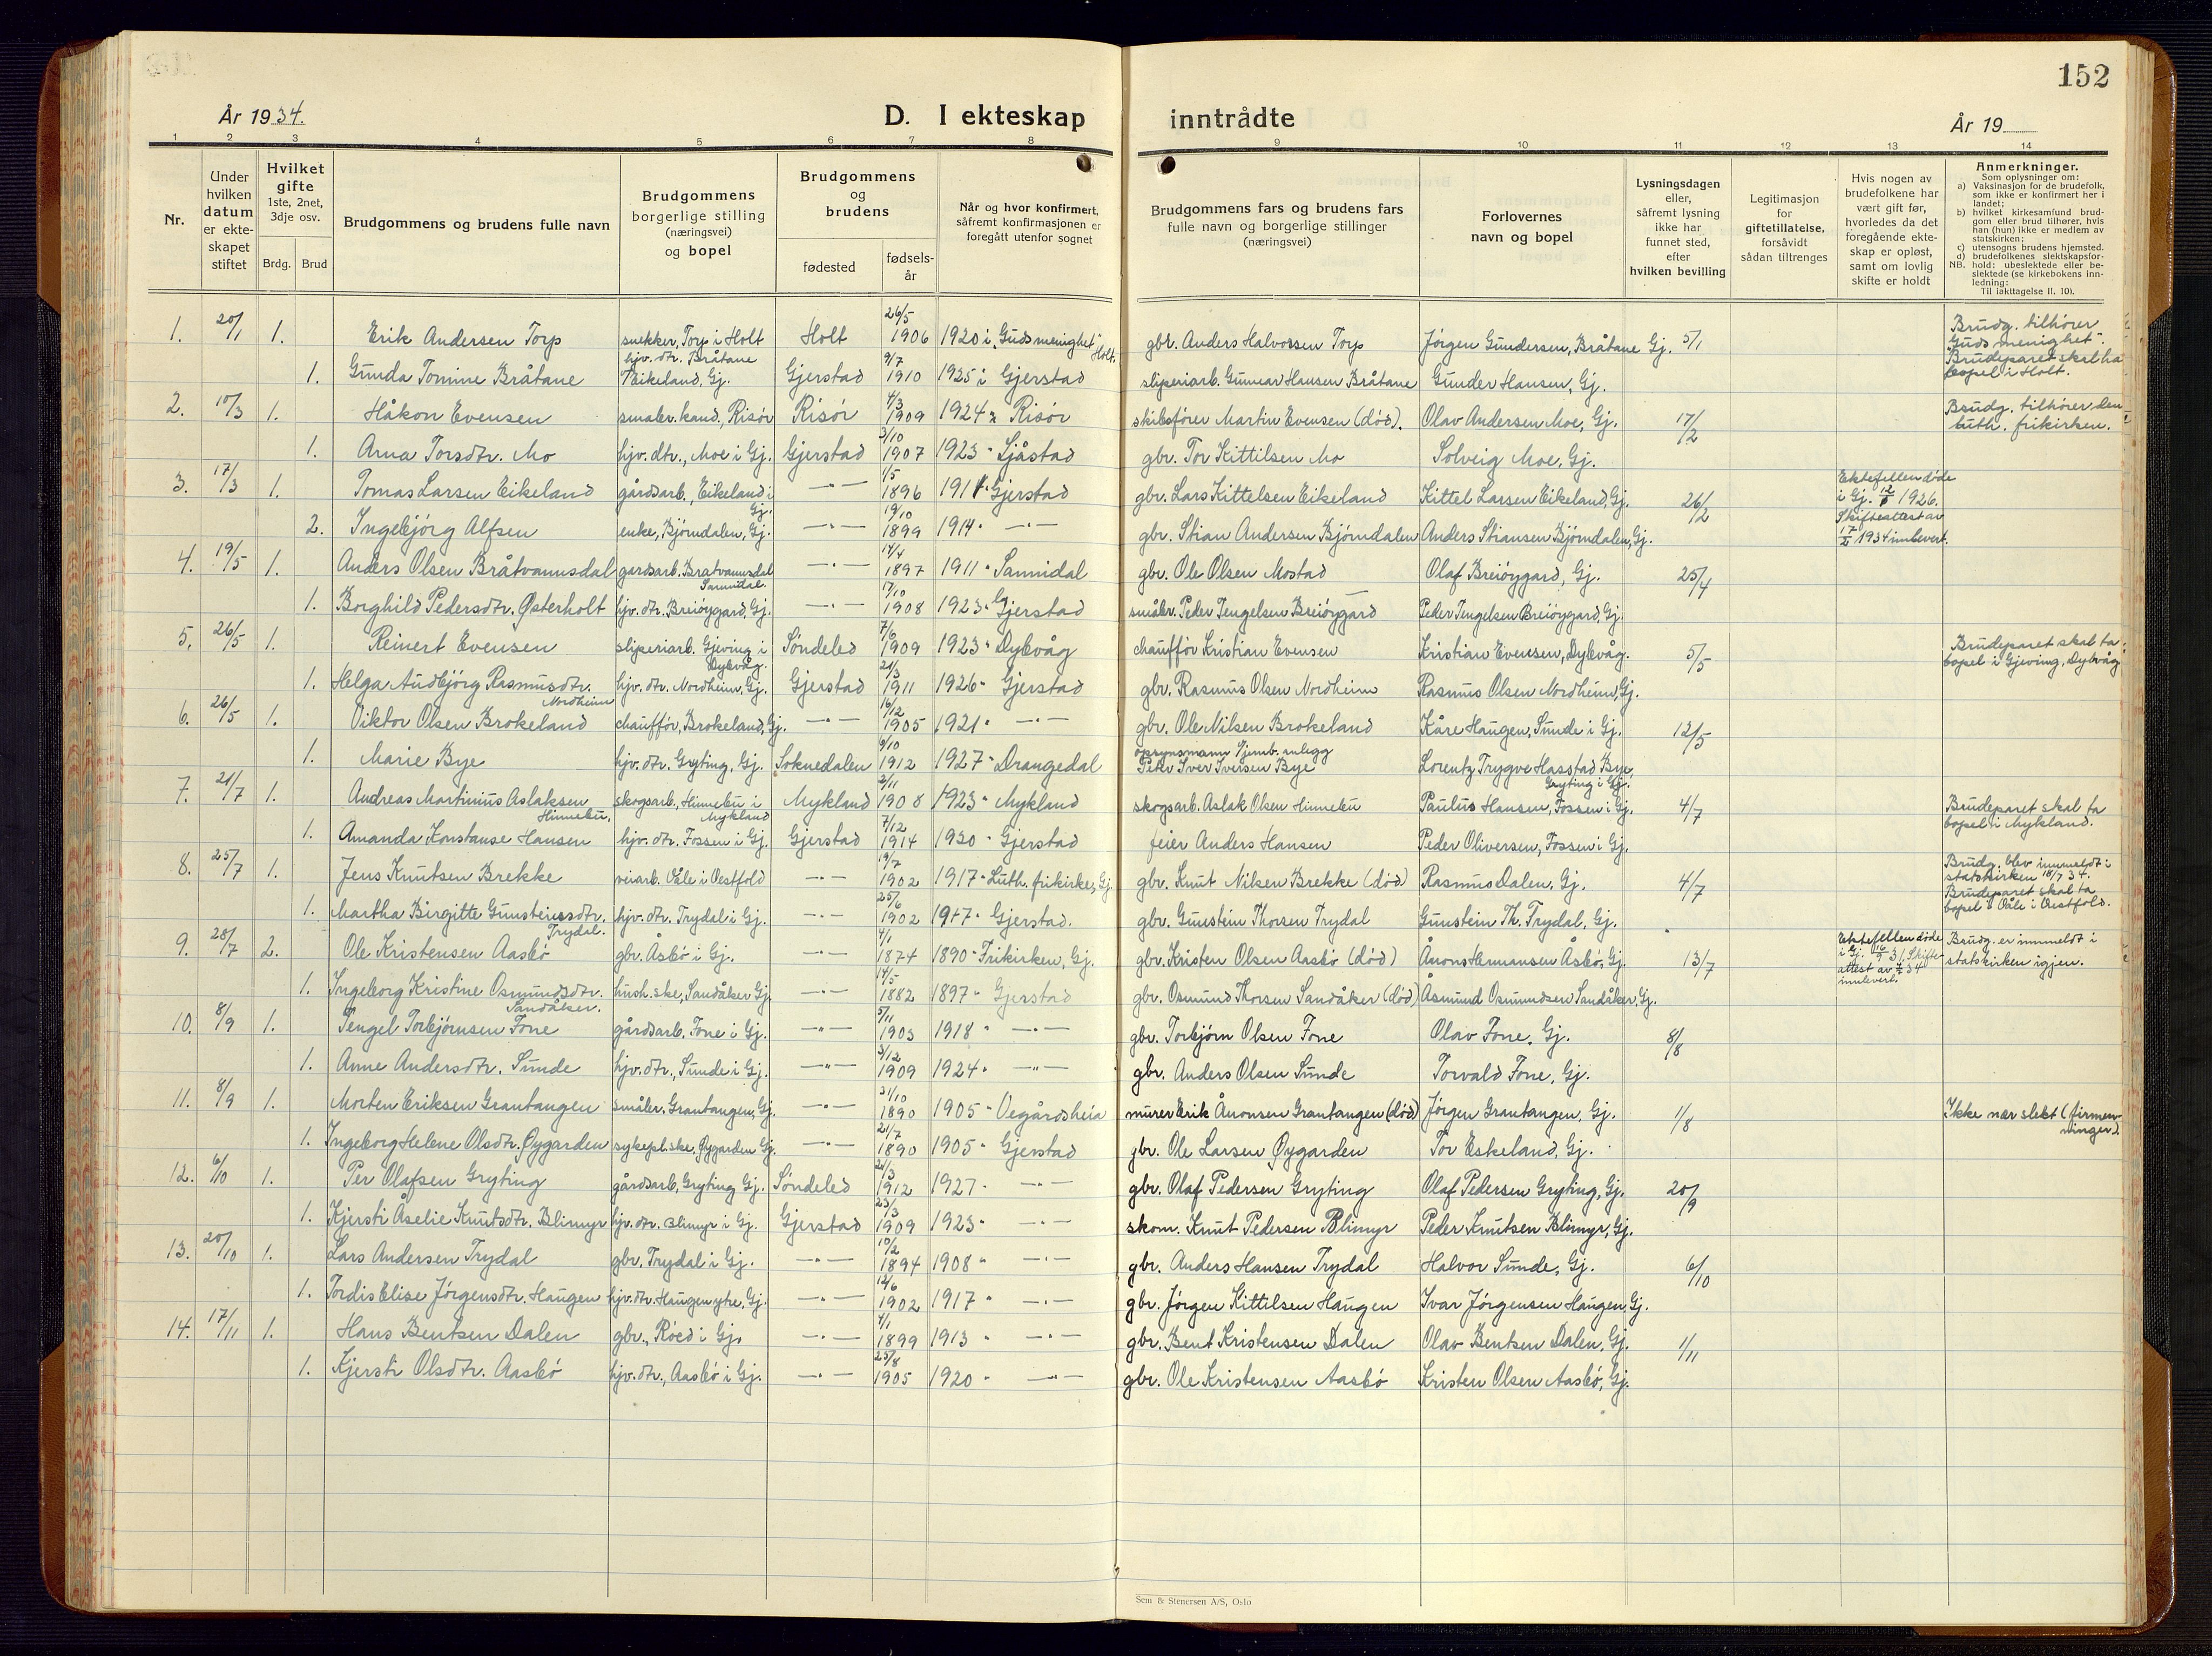 152
År 1934.
D. I ekteskap inntrådte
År 19
1 2 3 4 5 6 7 8 9 10 11 12 13 14
Nr.
Under hvilken datum er ekte-skapet stiftet
Hvilket gifte 1ste, 2net, 3dje osv.
Brdg. Brud
Brudgommens og brudens fulle navn
Brudgommens borgerlige stilling (næringsvei) og bopel
Brudgommens og brudens
fødested
fødsels-år
Når og hvor konfirmert, såfremt konfirmasjonen er foregått utenfor sognet
Brudgommens fars og brudens fars fulle navn og borgerlige stillinger (næringsvei)
Forlovernes navn og bopel
Lysningsdagen eller, såfremt lysning ikke har funnet sted, efter hvilken bevilling
Legitimasjon for giftetillatelse, forsåvidt sådan tiltrenges
Hvis nogen av brudefolkene har vært gift før, hvorledes da det foregående ekte-skap er opløst, samt om lovlig skifte er holdt
Anmerkninger.
Som oplysninger om:
a) Vaksinasjon for de brudefolk, som ikke er konfirmert her i landet;
b) hvilket kirkesamfund brud-gom eller brud tilhører, hvis han (hun) ikke er medlem av statskirken;
c) utensogns brudens hjemsted.
d) brudefolkenes slektskapsfor-hold: ubeslektede eller be-slektede (se kirkebokens inn-ledning;
NB. Til iakttagelse II. 10).
1. 20/1 1. Erik Andersen Torp snekker, Torp i Holt Holt 26/5 1906 1920 i "Guds menighet" Holt. gbr. Anders Halvorsen Torp Jörgen Gundersen, Bråtane Gj. 5/1 Brudg. tilhörer "Guds menighet". Brudeparet skal ha bopel i Holt.
1. Gunda Tomine Bråtane hjv. dtr. Bråtane Eikeland, Gj. Gjerstad 9/7 1910 1925 i Gjerstad sliperiarb. Gunnar Hansen Bråtane Gunder Hansen, Gj.
2. 10/3 1. Håkon Evensen småbr. kand., Risör Risör 4/3 1909 1924 " Risör skibsförer Martin Evensen (död). Olav Andersen Moe, Gj. 17/2 Brudg. tilhörer den luth. frikirken.
1. Arna Torsdtr. Mo hjv. dtr., Moe i Gj. Gjerstad 3/10 1907 1923 " Sjåstad gbr. Tor Kittilsen Mo Solveig Moe, Gj.
3. 17/3 1. Tomas Larsen Eikeland gårdsarb., Eikeland i Gj. — " — 1/5 1896 1911 " Gjerstad gbr. Lars Kittelsen Eikeland Kittel Larsen Eikeland, Gj. 26/2 Ektefellen döde i Gj. 1926. Skifteattest av 1934 innlevert.
2. Ingebjörg Alfsen enke, Björndalen, Gj. — " — 19/10 1899 1914 " — " — gbr. Stian Andersen Björndalen Anders Stiansen Björndalen, Gj.
4. 19/5 1. Anders Olsen Bråtvannsdal gårdsarb. Bråtvannsdal Sannidal. — " — 14/4 1897 1911 " Sannidal gbr. Ole Olsen Mostad Olaf Breiöygard, Gj. 25/4
1. Borghild Pedersdtr. Østerholt hjv. dtr. Breiöygard, Gj. — " — 17/10 1908 1923 " Gjerstad småbr. Peder Tengelsen Breiöygard Peder Tengelsen Breiöygard, Gj.
5. 26/5 1. Reinert Evensen sliperiarb. Gjeving i Dybvåg. Söndeled 7/6 1909 1923 " Dybvåg chaufför Kristian Evensen Kristian Evensen, Dybvåg. 5/5 Brudeparet skal ta bopel i Gjeving, Dybvåg
1. Helga Audbjörg Rasmusdtr. Nordheim hjv. dtr. Nordheim, Gj. Gjerstad 21/3 1911 1926 " Gjerstad gbr. Rasmus Olsen Nordheim Rasmus Olsen Nordheim, Gj.
6. 26/5 1. Viktor Olsen Brokeland chaufför, Brokeland, Gj. — " — 16/12 1905 1921 " — " — gbr. Ole Nilsen Brokeland Kåre Haugen, Sunde i Gj. 12/5
1. Marie Bye hjv. dtr. Gryting, Gj. Soknedalen 9/10 1912 1927 " Drangedal opsynsmann v/jernb. anlegg Peter Iver Iversen Bye Lorentz Trygve Hasstad Bye, Gryting i Gj.
7. 21/7 1. Andreas Martinius Aslaksen Hinnebu. skogsarb., Hinnebu i Mykland Mykland 2/11 1908 1923 " Mykland skogsarb. Aslak Olsen Hinnebu Paulus Hansen, Fossen i Gj. 4/7 Brudeparet skal ta bopel i Mykland.
1. Amanda Konstanse Hansen hjv. dtr. Fossen i Gj. Gjerstad 7/12 1914 1930 " Gjerstad feier Anders Hansen Peder Oliversen, Fossen i Gj.
8. 25/7 1. Jens Knutsen Brekke veiarb. Våle i Vestfold — " — 19/7 1902 1917 " Luth. frikirke, Gj. gbr. Knut Nilsen Brekke (död) Rasmus Dalen, Gj. 4/7 Brudg. blev innmeldt i statskirken 18/7 34. Brudeparet skal ta bopel i Våle i Vestfold.
1. Martha Birgitte Gunsteinsdtr. Trydal. hjv. dtr. Trydal i Gj. — " — 25/6 1902 1917 " Gjerstad. gbr. Gunstein Thorsen Trydal Gunstein Th. Trydal, Gj.
9. 28/7 2. Ole Kristensen Aasbö gbr. Åsbö i Gj. — " — 4/1 1874 1890 " Frikirken, Gj. gbr. Kristen Olsen Aasbö (död) Ånon Hermansen Åsbö, Gj. 13/7 Ektefellen döde i Gj. 31. Skifteattest av 34 innlevert. Brudg. er innmeldt i statskirken igjen.
1. Ingeborg Kristine Osmundsdtr. Sandåker. hush.ske, Sandåker Gj. — " — 14/5 1882 1897 " Gjerstad gbr. Osmund Thorsen Sandåker (död) Åsmund Osmundsen Sandåker, Gj.
10. 8/9 1. Tengel Torbjörnsen Fone gårdsarb. Fone i Gj. — " — 5/11 1903 1918 " — " — gbr. Torbjörn Olsen Fone Olav Fone, Gj. 8/8
1. Anne Andersdtr. Sunde hjv. dtr., Sunde i Gj. — " — 3/12 1909 1924 " — " — gbr. Anders Olsen Sunde Torvald Fone, Gj.
11. 8/9 1. Morten Eriksen Grantangen småbr. Grantangen, Gj. — " — 31/10 1890 1905 " Vegårdsheia murer Erik Ånonsen Grantangen (död) Jörgen Grantangen, Gj. 1/8 Ikke nær slekt (firmenninger).
1. Ingeborg Helene Olsdtr. Øygarden sykepl.ske, Øygarden Gj. — " — 21/7 1890 1905 " Gjerstad gbr. Ole Larsen Øygarden Tor Eskeland, Gj.
12. 6/10 1. Per Olafsen Gryting gårdsarb, Gryting Gj. Söndeled 21/3 1912 1927 " — " — gbr. Olaf Pedersen Gryting Olaf Pedersen Gryting, Gj. 20/9
1. Kjersti Åselie Knutsdtr. Blimyr hjv. dtr. Blimyr i Gj. Gjerstad 23/3 1909 1923 " — " — skom. Knut Pedersen Blimyr Peder Knutsen Blimyr, Gj.
13. 20/10 1. Lars Andersen Trydal gbr. Trydal i Gj. — " — 10/2 1894 1908 " — " — gbr. Anders Hansen Trydal Halvor Sunde, Gj. 6/10
1. Tordis Elise Jörgensdtr. Haugen hjv. dtr. Haugen ytre, Gj. — " — 12/6 1902 1917 " — " — gbr. Jörgen Kittilsen Haugen Ivar Jörgensen Haugen, Gj.
14. 17/11 1. Hans Bentsen Dalen gbr., Röed i Gj. — " — 4/1 1899 1913 " — " — gbr. Bent Kristensen Dalen Olav Bentsen Dalen, Gj. 1/11
1. Kjersti Olsdtr. Aasbö hjv. dtr., Aasbö i Gj. — " — 25/8 1905 1920 " — " — gbr. Ole Kristensen Aasbö Kristen Olsen Aasbö, Gj.
Sem & Stenersen A/S, Oslo